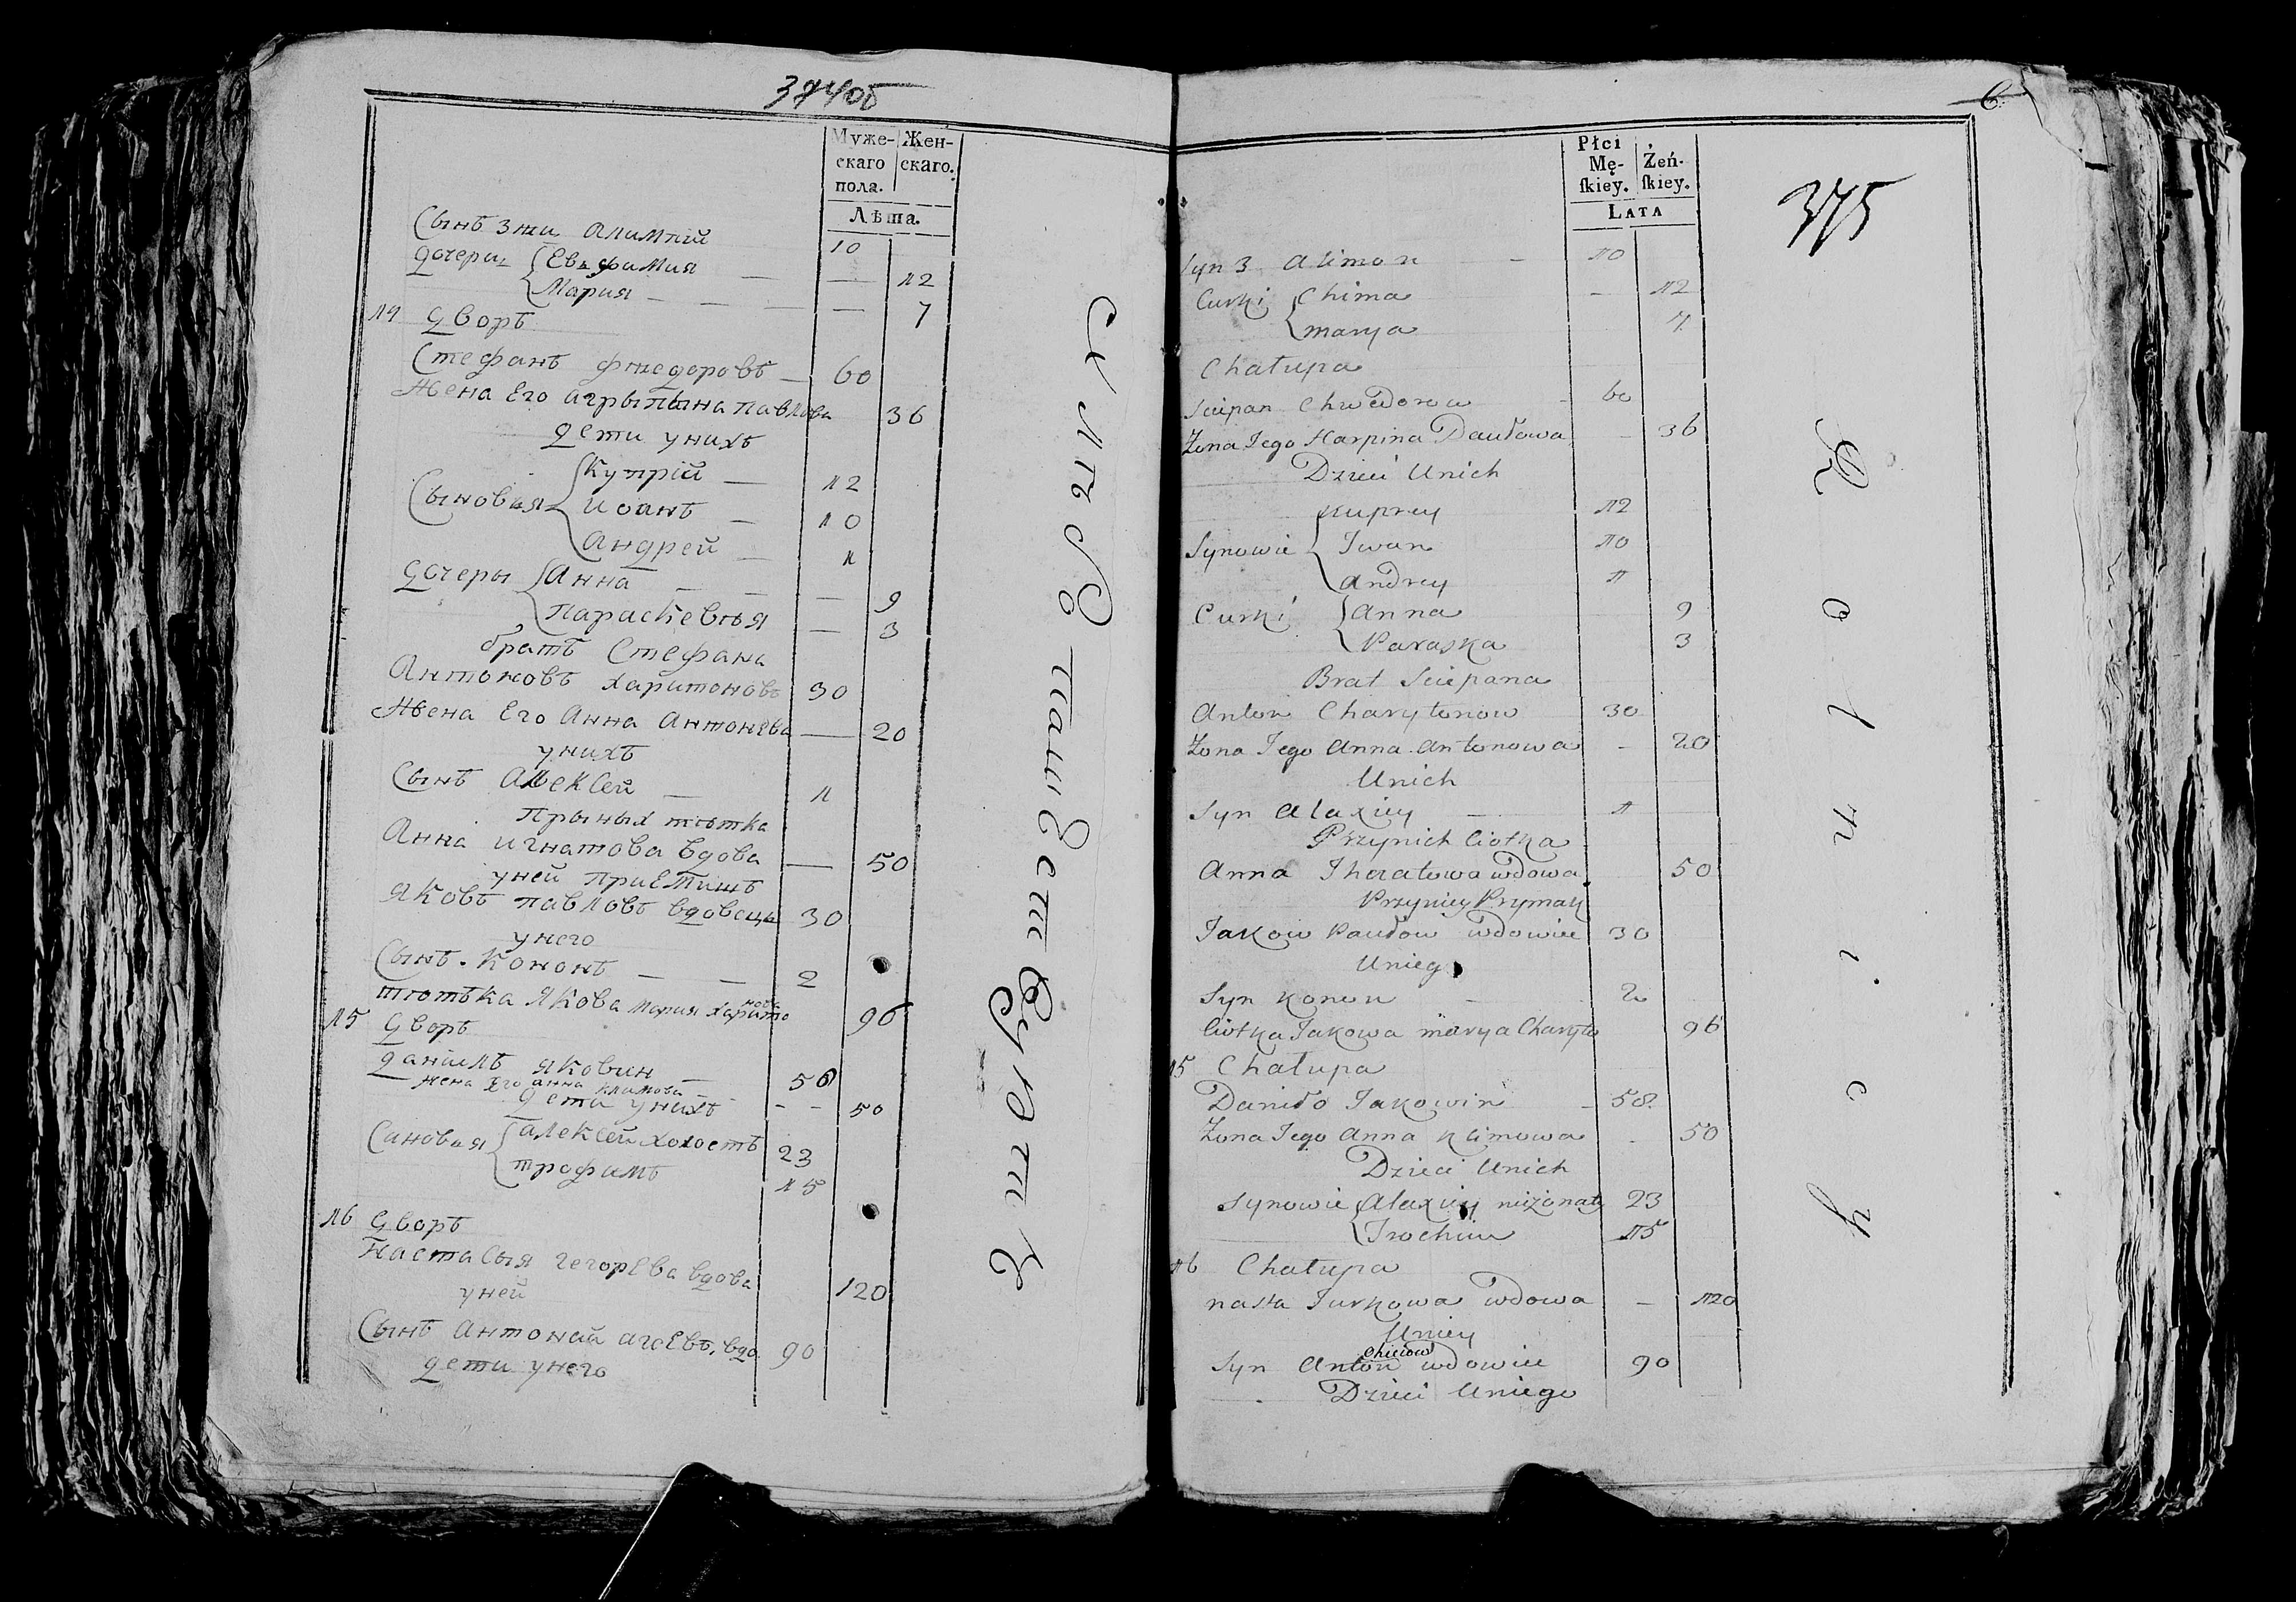 374об
Муже-
скаго
пола.
Жен-
скаго.
Лѣта.
Сынъ 3ти Алимпій 10
дочери Евѳфимия — — 12
Мария — — — 7
14 Дворъ
Стефанъ Фтедоровъ — 60
Жена Его Агрыпына Павлова 36
дети унихъ
Купрій — 12
Сыновья Иоанъ — 10
Андрей — 1
Дочеры Анна — — — 9
Параскевъя — 3
братъ Стефана
Антоновъ Харитоновъ 30
Жена Его Анна Антонева — 20
унихъ
Сынъ Алексей — 1
Прыных тютка
Анна Игнатова вдова — 50
уней приЕтишъ
Яковъ Павловъ вдовецъ 30
унего
Сынъ Кононъ — 2
тютъка Якова Мария Харитонова 96
15 Дворъ
Даніилъ Яковин — 58
Жена Его Анна Климова - - 50
дети унихъ
Сановья Алексей холостъ 23
Трофимъ 15
16 Дворъ
Настасья Гегорева вдова 120
уней
Сынъ Антоній Агеевъ, вдо 90
дети унего
6
375
Płci
Mę-
skiey.
Żeń-
skiey.
Lata
Syn 3 Alimon — 10
Curki Chima — 12
Marya 7
Chałupa
Sciepan Chwedorow - 60
Żona Jego Harpina Daudowa — 36
Dzieci Unich
Kuprey 12
Synowie Iwan 10
Andrey 1
Curki Anna 9
Paraska 3
Brat Sciepana
Anton Charytonow 30
Żona Jego Anna Antonowa — 20
Unich
Syn Alaxiey — 1
Przynich Ciotka
Anna Ihnatowa wdowa 50
Przyniey Prymak
Jakow Paudow wdowiec 30
Unieg
Syn Konon 2
Ciotka Jakowa Marya Charyto 96
15 Chałupa
Daniło Jakowin — 58
Żona Jego Anna Klimowa - 50
Dzieci Unich
Synowie Alaxiey nieżonaty 23
Trochim 15
16 Chałupa
Nasta Jurkowa wdowa — 120
Uniey
Syn Anton wdowiec 90
Dzieci Uniego
Rolnicy